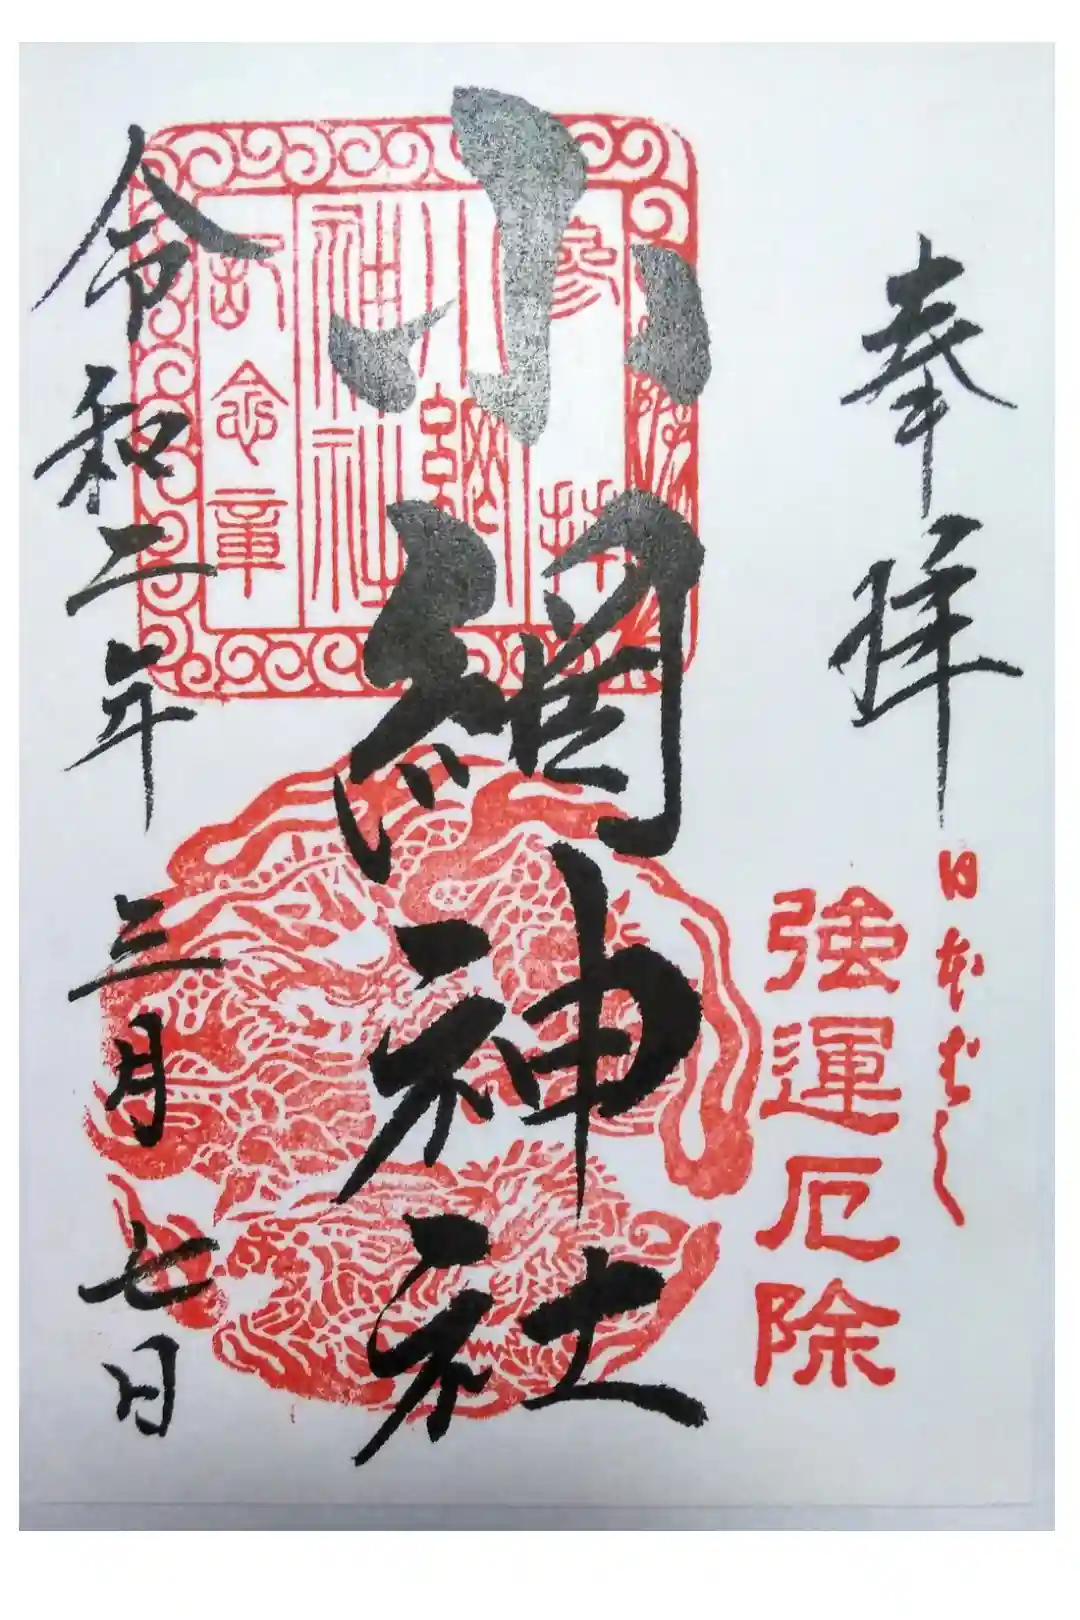 奉拝
日本ばし
強運厄除
小網神社
参拝
小網
神社
記念章
令和二年三月七日